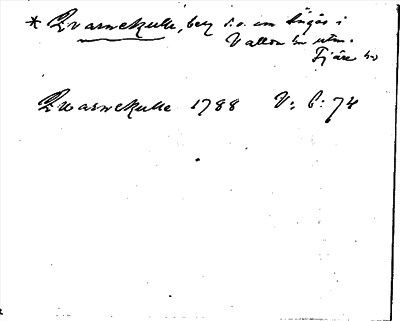 * Qvarnekulle, berg s.o. om Ängås i
Valda sn utm.
Fjäre hd
Qwarnekulle 1788 V: 6: 74